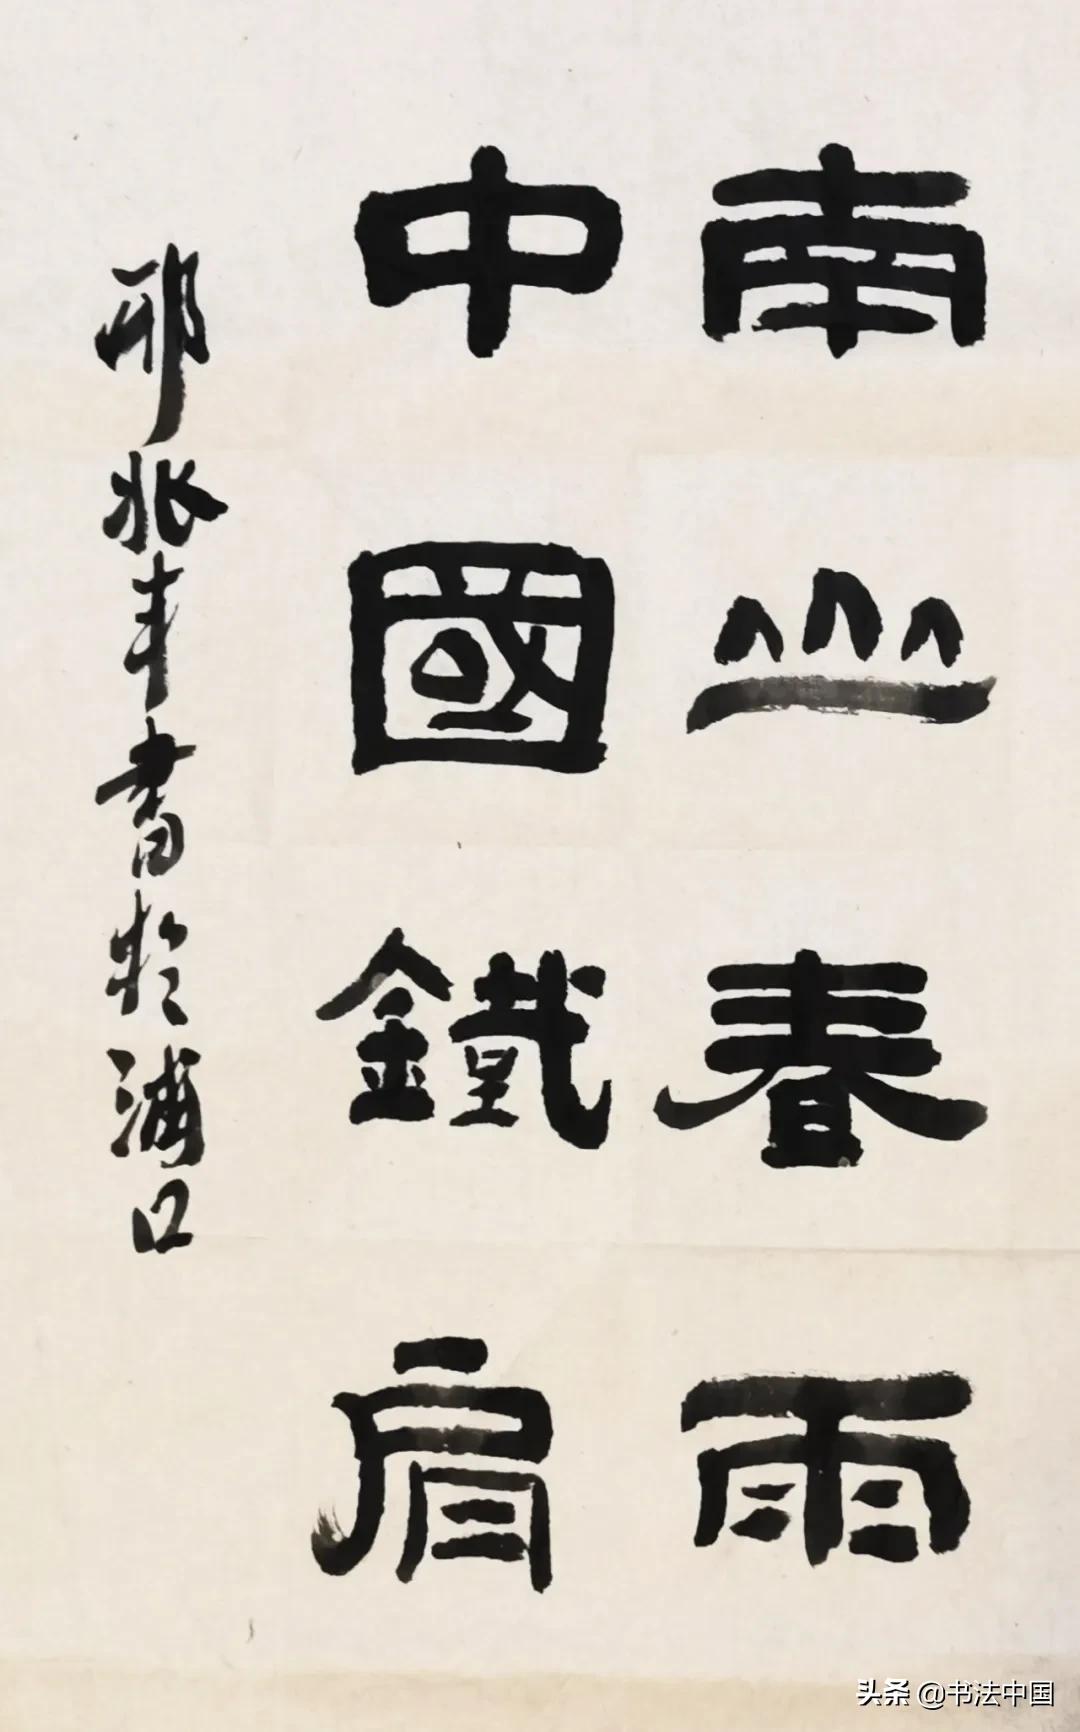 南山春雨
中國鐵肩
邢振年書於浦口
头条 @书法中国